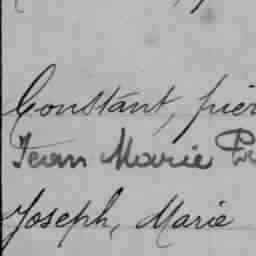 Constant, pier
Jean Marie
Joseph, Marie